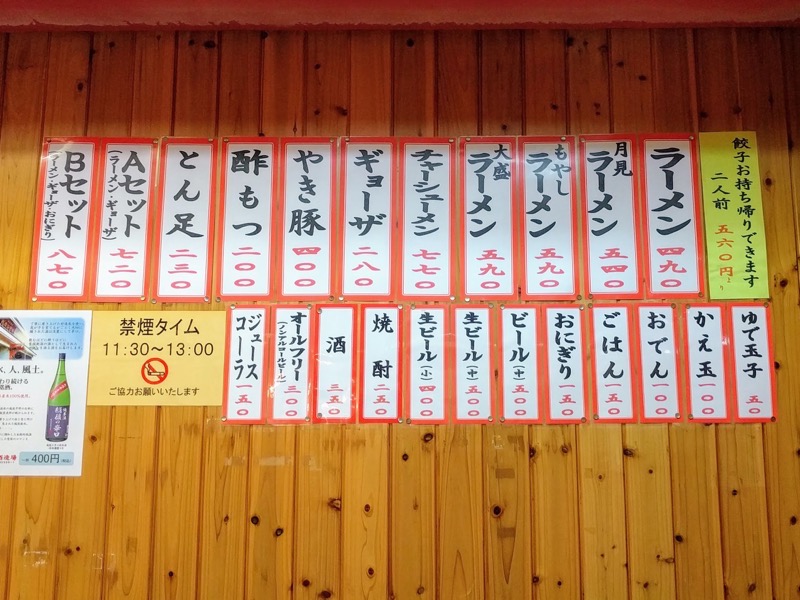 餃子お持ち帰りできます
二人前 五六〇円
ラーメン 四九〇
月見
ラーメン 五四〇
もやし
ラーメン 五九〇
大盛
ラーメン 五九〇
チャーシューメン 七七〇
ギョーザ 二八〇
やき豚 四〇〇
酢もつ 二〇〇
とん足 二三〇
Aセット
(ラーメン・ギョーザ) 七二〇
Bセット
(ラーメン・ギョーザ・おにぎり) 八七〇
ゆで玉子 五〇
かえ玉 一〇〇
おでん 一〇〇
ごはん 一五〇
おにぎり 一五〇
ビール(中) 五五〇
生ビール(中) 五〇〇
生ビール(小) 四〇〇
焼酎 二五〇
酒 三五〇
オールフリー
(ノンアルコールビール) 三一〇
ジュース
コーラ 一五〇
禁煙タイム
11:30~13:00
ご協力お願いいたします
人、風土。
400円